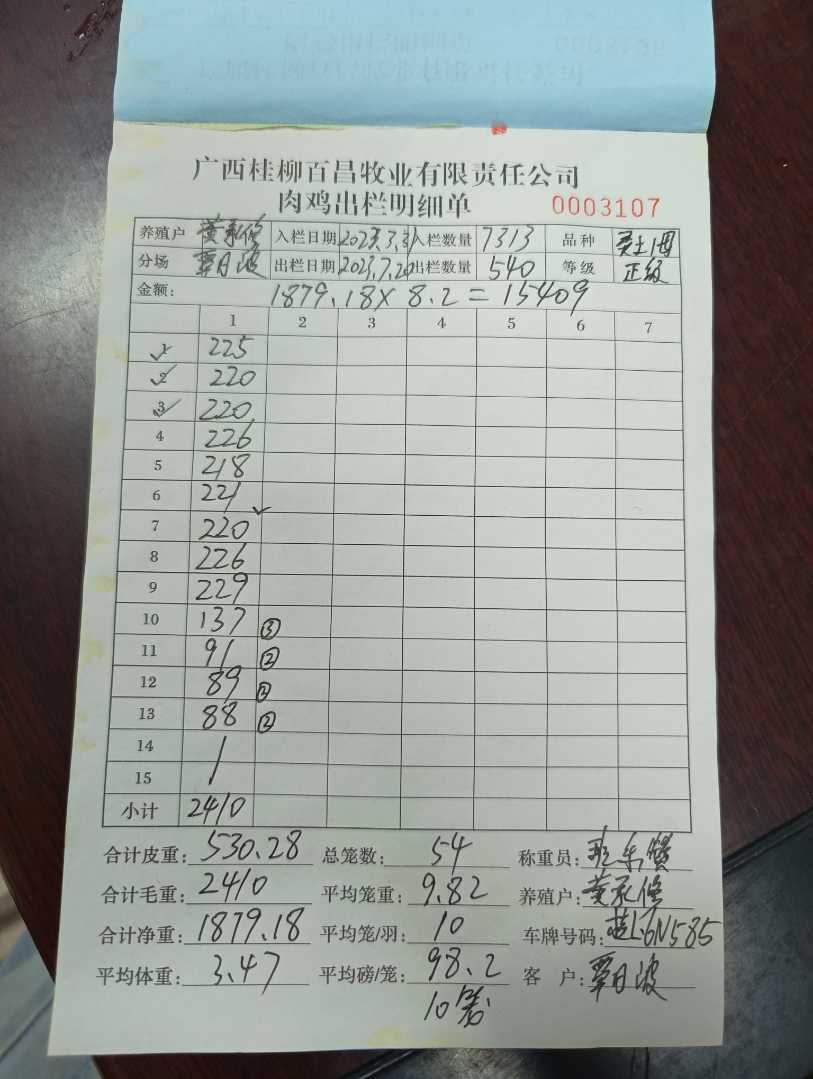 广西桂柳百昌牧业有限责任公司
肉鸡出栏明细单 0003107
养殖户 黄承修 入栏日期 2023.3.31 入栏数量 7313 品种
分场 覃月波 出栏日期 2023.7.20 出栏数量 540 等级 正级
金额: 1879.18 X 8.2 = 15409
1 2 3 4 5 6 7
1 225
2 220
3 220
4 226
5 218
6 221
7 220
8 226
9 229
10 137 ③
11 91 ②
12 89 ②
13 88 ②
14
15
小计 2410
合计皮重: 530.28 总笼数: 54 称重员:
合计毛重: 2410 平均笼重: 9.82 养殖户: 黄承修
合计净重: 1879.18 平均笼/羽: 10 车牌号码: L·6N585
平均体重: 3.47 平均磅/笼: 98.2 客 户: 覃月波
10